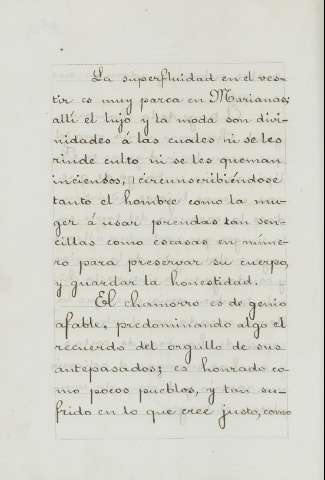 La superfluidad en el ves-
tir es muy parca en Marianas;
allí el lujo y la moda son divi-
nidades á las cuales ni se les
rinde culto ni se les queman
inciensos, circunscribiéndose
tanto el hombre como la mu-
ger á usar prendas tan sen-
cillas como escasas en núme-
ro para preservar su cuerpo,
y guardar la honestidad.
El chamorro es de genio
afable, predominando algo el
recuerdo del orgullo de sus
antepasados; es honrado co-
mo pocos pueblos, y tan su-
frido en lo que cree justo, como